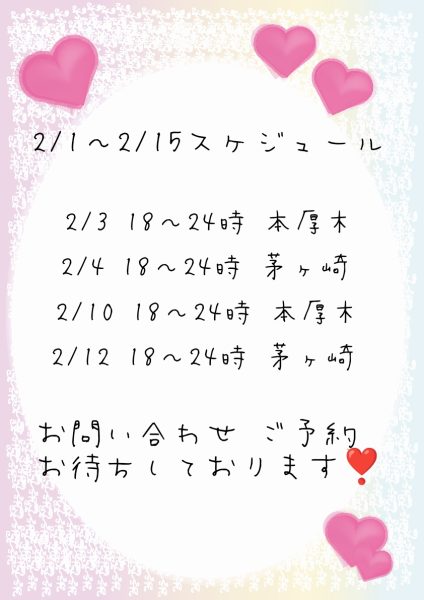 2/1～2/15スケジュール
2/3 18～24時 本厚木
2/4 18～24時 茅ヶ崎
2/10 18～24時 本厚木
2/12 18～24時 茅ヶ崎
お問い合わせ ご予約
お待ちしております❣️